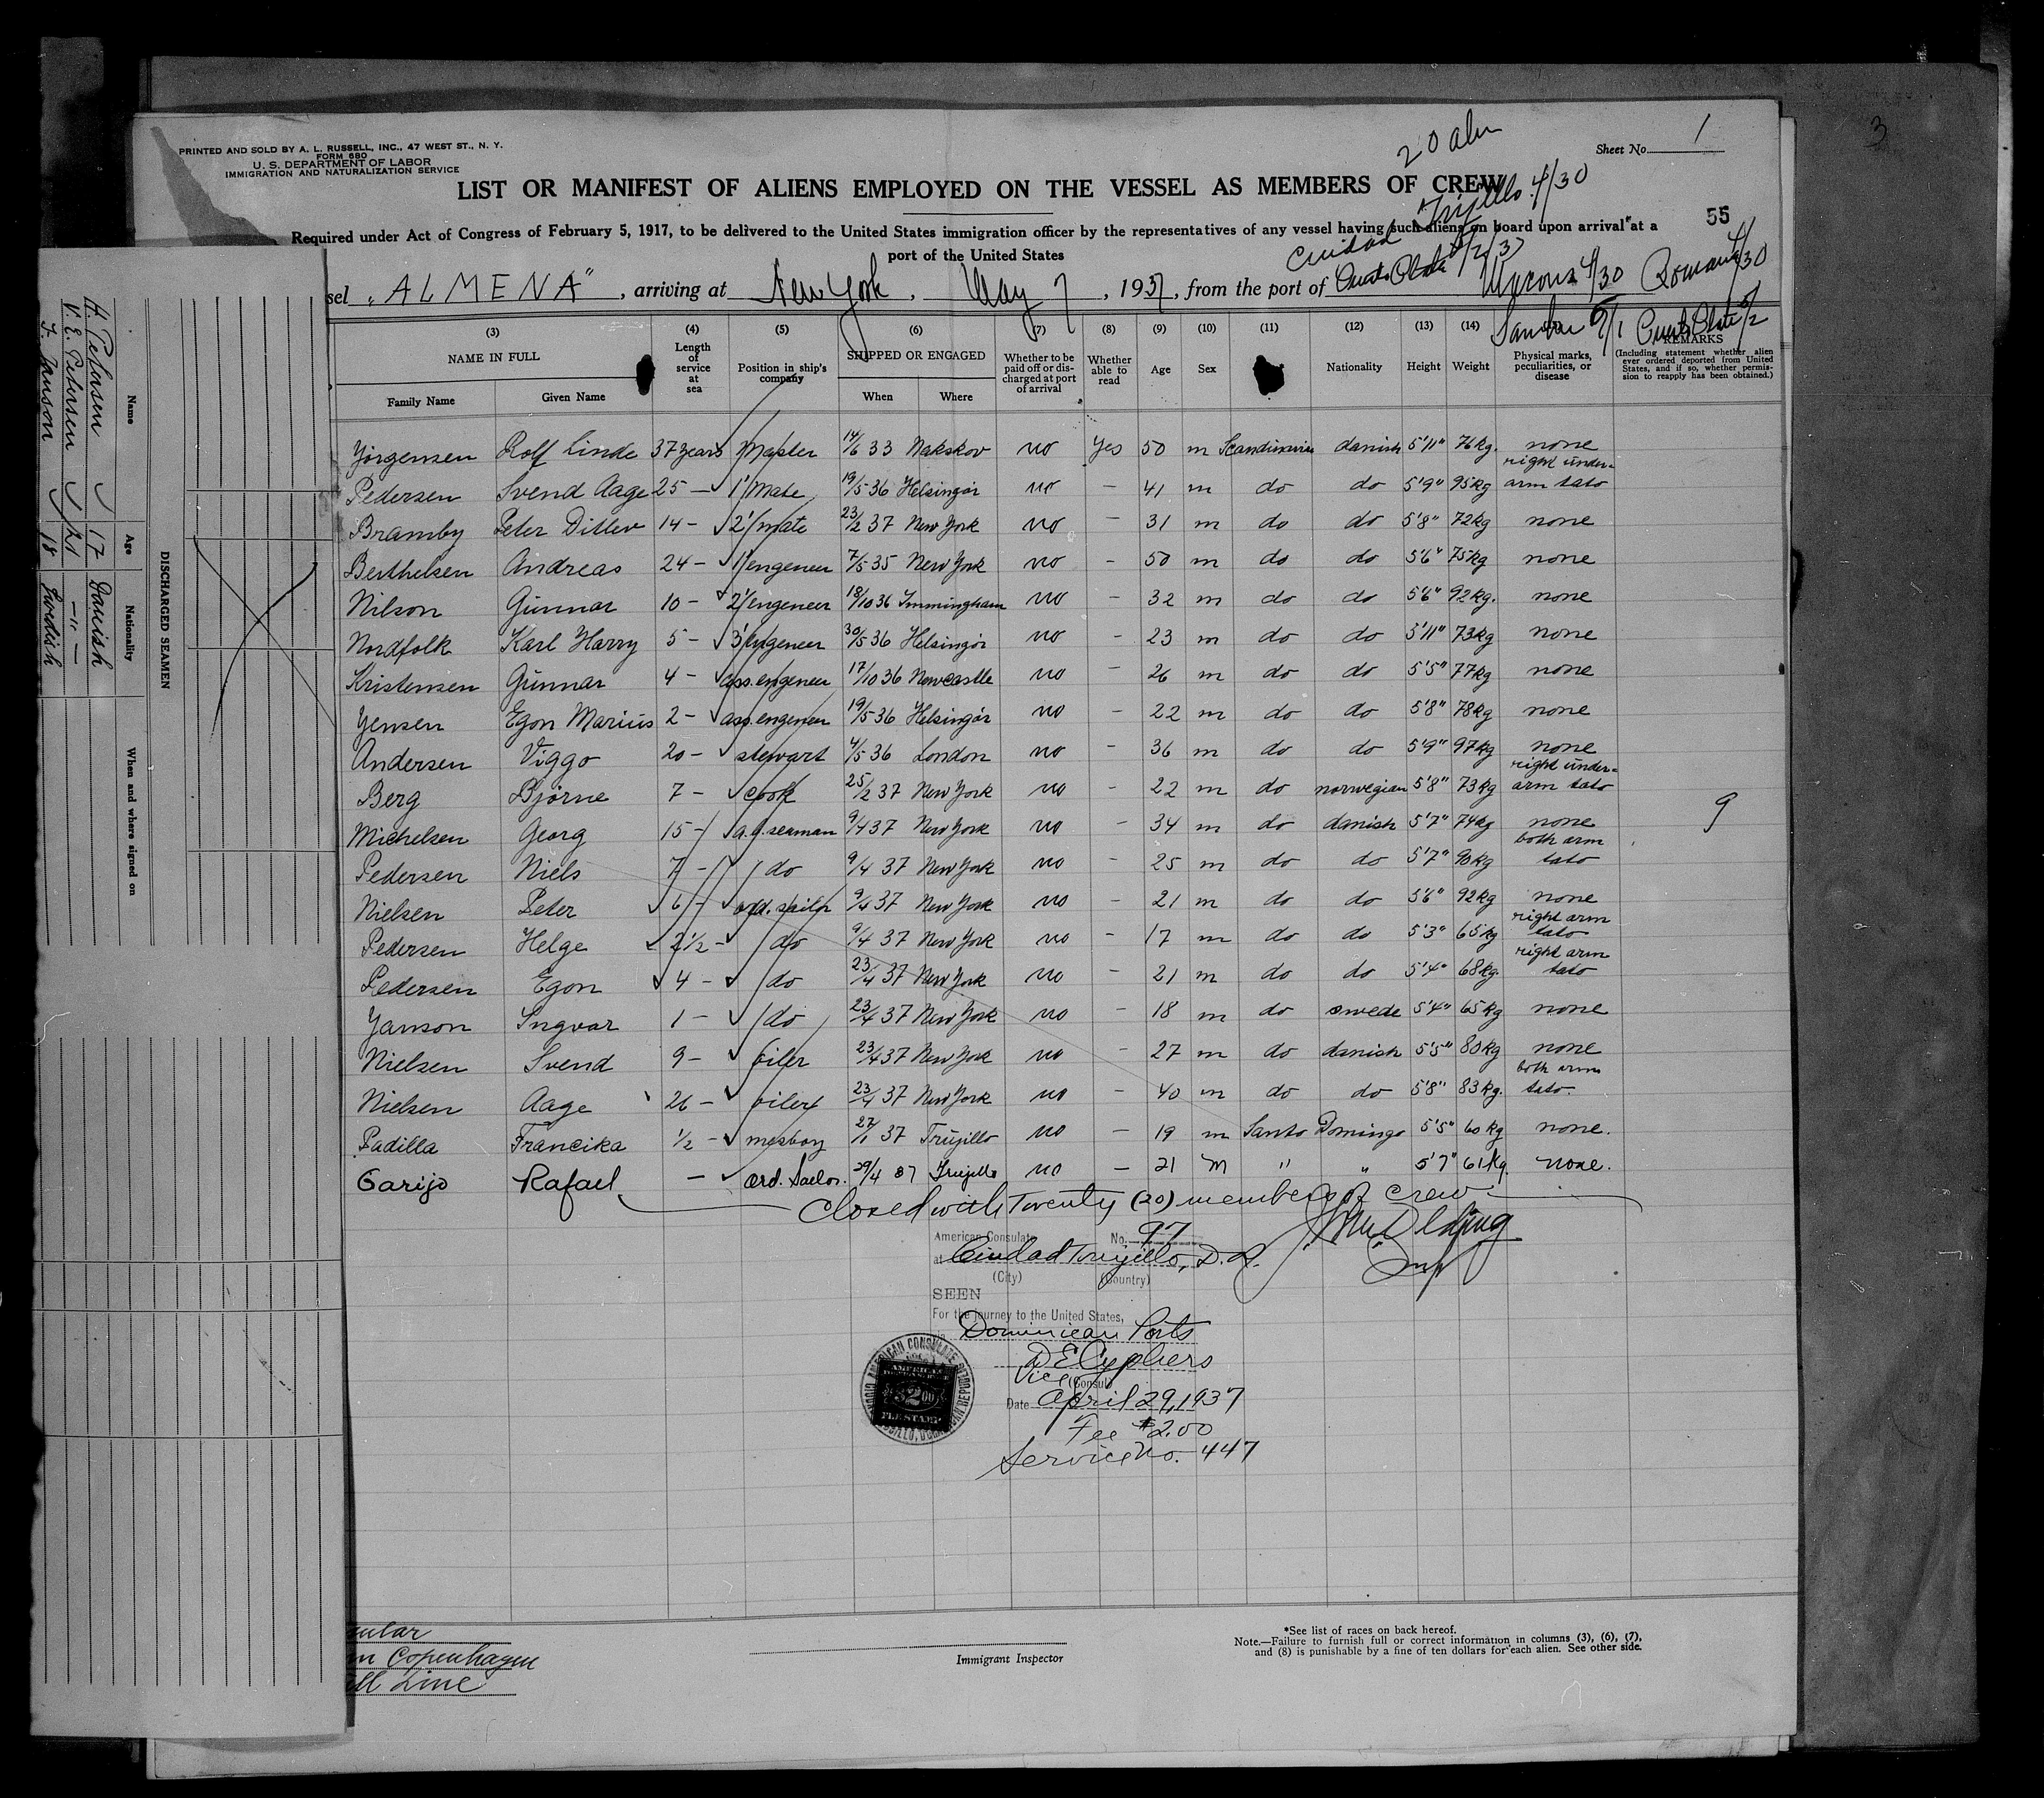 PRINTED AND SOLD BY A. L. RUSSELL, INC., 47 WEST ST., N. Y.
FORM 680
U. S. DEPARTMENT OF LABOR
IMMIGRATION AND NATURALIZATION SERVICE
20 alm
Sheet No. 1
3
LIST OR MANIFEST OF ALIENS EMPLOYED ON THE VESSEL AS MEMBERS OF CREW
55
Required under Act of Congress of February 5, 1917, to be delivered to the United States immigration officer by the representatives of any vessel having such aliens on board upon arrival at a
port of the United States
Ciudad Trujillo 4/30
sel "ALMENA", arriving at New York, May 7, 1937, from the port of 5/2/37 4/30 Romana 4/30
5/1 5/2
(3) (4) (5) (6) (7) (8) (9) (10) (11) (12) (13) (14)
NAME IN FULL Length of service at sea Position in ship's company SHIPPED OR ENGAGED Whether to be paid off or discharged at port of arrival Whether able to read Age Sex Nationality Height Weight Physical marks, peculiarities, or disease REMARKS (Including statement whether alien ever ordered deported from United States, and if so, whether permission to reapply has been obtained.)
Family Name Given Name When Where
Yörgensen Rolf Linde 37 years Master 14/6 33 Nakskov no Yes 50 m Scandinavia danish 5'11" 76 kg. none
Pedersen Svend Aage 25 – 1' Mate 19/5 36 Helsingör no – 41 m do do 5'9" 95 kg right under-arm tato
Bramby Peter Ditlev 14 – 2' mate 23/2 37 New York no – 31 m do do 5'8" 72 kg none
Berthelsen Andreas 24 – 1' engeneer 7/5 35 New York no – 50 m do do 5'6" 75 kg none
Nilson Gunnar 10 – 2' engeneer 18/10 36 Immingham no – 32 m do do 5'6" 92 kg. none
Nordfolk Karl Harry 5 – 3' engeneer 30/5 36 Helsingör no – 23 m do do 5'11" 73 kg none
Kristensen Gunnar 4 – ass. engeneer 17/10 36 Newcastle no – 26 m do do 5'5" 77 kg none
Yensen Egon Marius 2 – ass. engeneer 19/5 36 Helsingör no – 22 m do do 5'8" 78 kg none
Andersen Viggo 20 – stewart 4/5 36 London no – 36 m do do 5'9" 97 kg none
Berg Björne 7 – cook 25/2 37 New York no – 22 m do norwegian 5'8" 73 kg right under-arm tato
9
Michelsen Georg 15 – a.g. seaman 9/4 37 New York no – 34 m do danish 5'7" 74 kg none
Pedersen Niels 7 – do 9/4 37 New York no – 25 m do do 5'7" 90 kg both arm tato
Nielsen Peter 6 – ord. sailor 9/4 37 New York no – 21 m do do 5'6" 92 kg none
Pedersen Helge 2 1/2 – do 9/4 37 New York no – 17 m do do 5'3" 65 kg right arm tato
Pedersen Egon 4 – do 23/4 37 New York no – 21 m do do 5'4" 68 kg. right arm tato
Yanson Ingvar 1 – do 23/4 37 New York no – 18 m do swede 5'4" 65 kg none
Nielsen Svend 9 – oiler 23/4 37 New York no – 27 m do danish 5'5" 80 kg none
Nielsen Aage 26 – oiler 23/4 37 New York no – 40 m do do 5'8" 83 kg. both arm tato.
Padilla Francika 1/2 – mesboy 27/1 37 Trujillo no – 19 m Santo Domingo 5'5" 60 kg none.
Garijo Rafael – ord. Saelor. 29/4 37 Trujillo no – 21 m " " 5'7" 61 kg. none.
Closed with Twenty (20) members of crew
American Consulate No. 97
at Ciudad Trujillo, D. R.
(City) (Country)
SEEN
For the journey to the United States,
Dominican Ports
D E Cyphers
Vice (Consul)
Date April 29, 1937
Fee $2.00
Service No. 447
AMERICAN CONSULATE
$2.00
FEE STAMP
Immigrant Inspector
*See list of races on back hereof.
Note.—Failure to furnish full or correct information in columns (3), (6), (7),
and (8) is punishable by a fine of ten dollars for each alien. See other side.
m Copenhagen
ll Line
DISCHARGED SEAMEN
Name Age Nationality When and where signed on
H. Pedersen 17 Danish
V. E. Petersen 21 – " –
J. Janson 18 Swedish